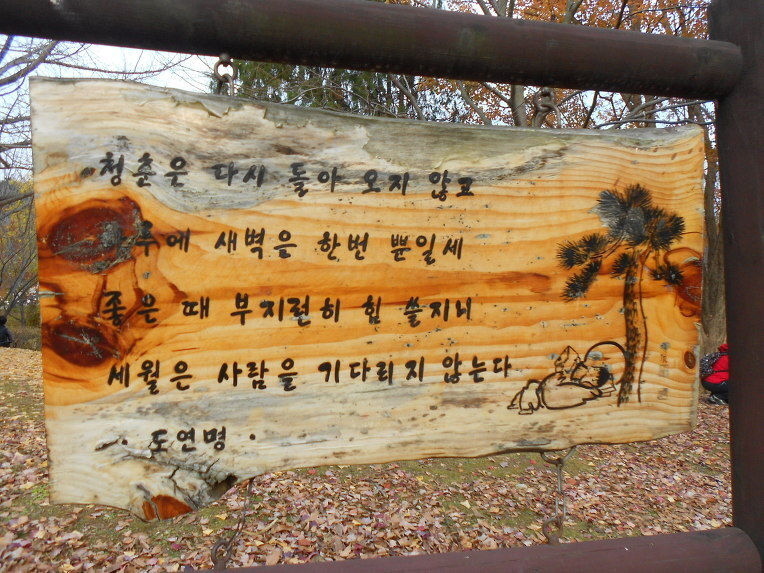 청춘은 다시 돌아 오지 않고
하루에 새벽을 한번 뿐일세
좋은 때 부지런히 힘 쓸지니
세월은 사람을 기다리지 않는다
· 도연명 ·